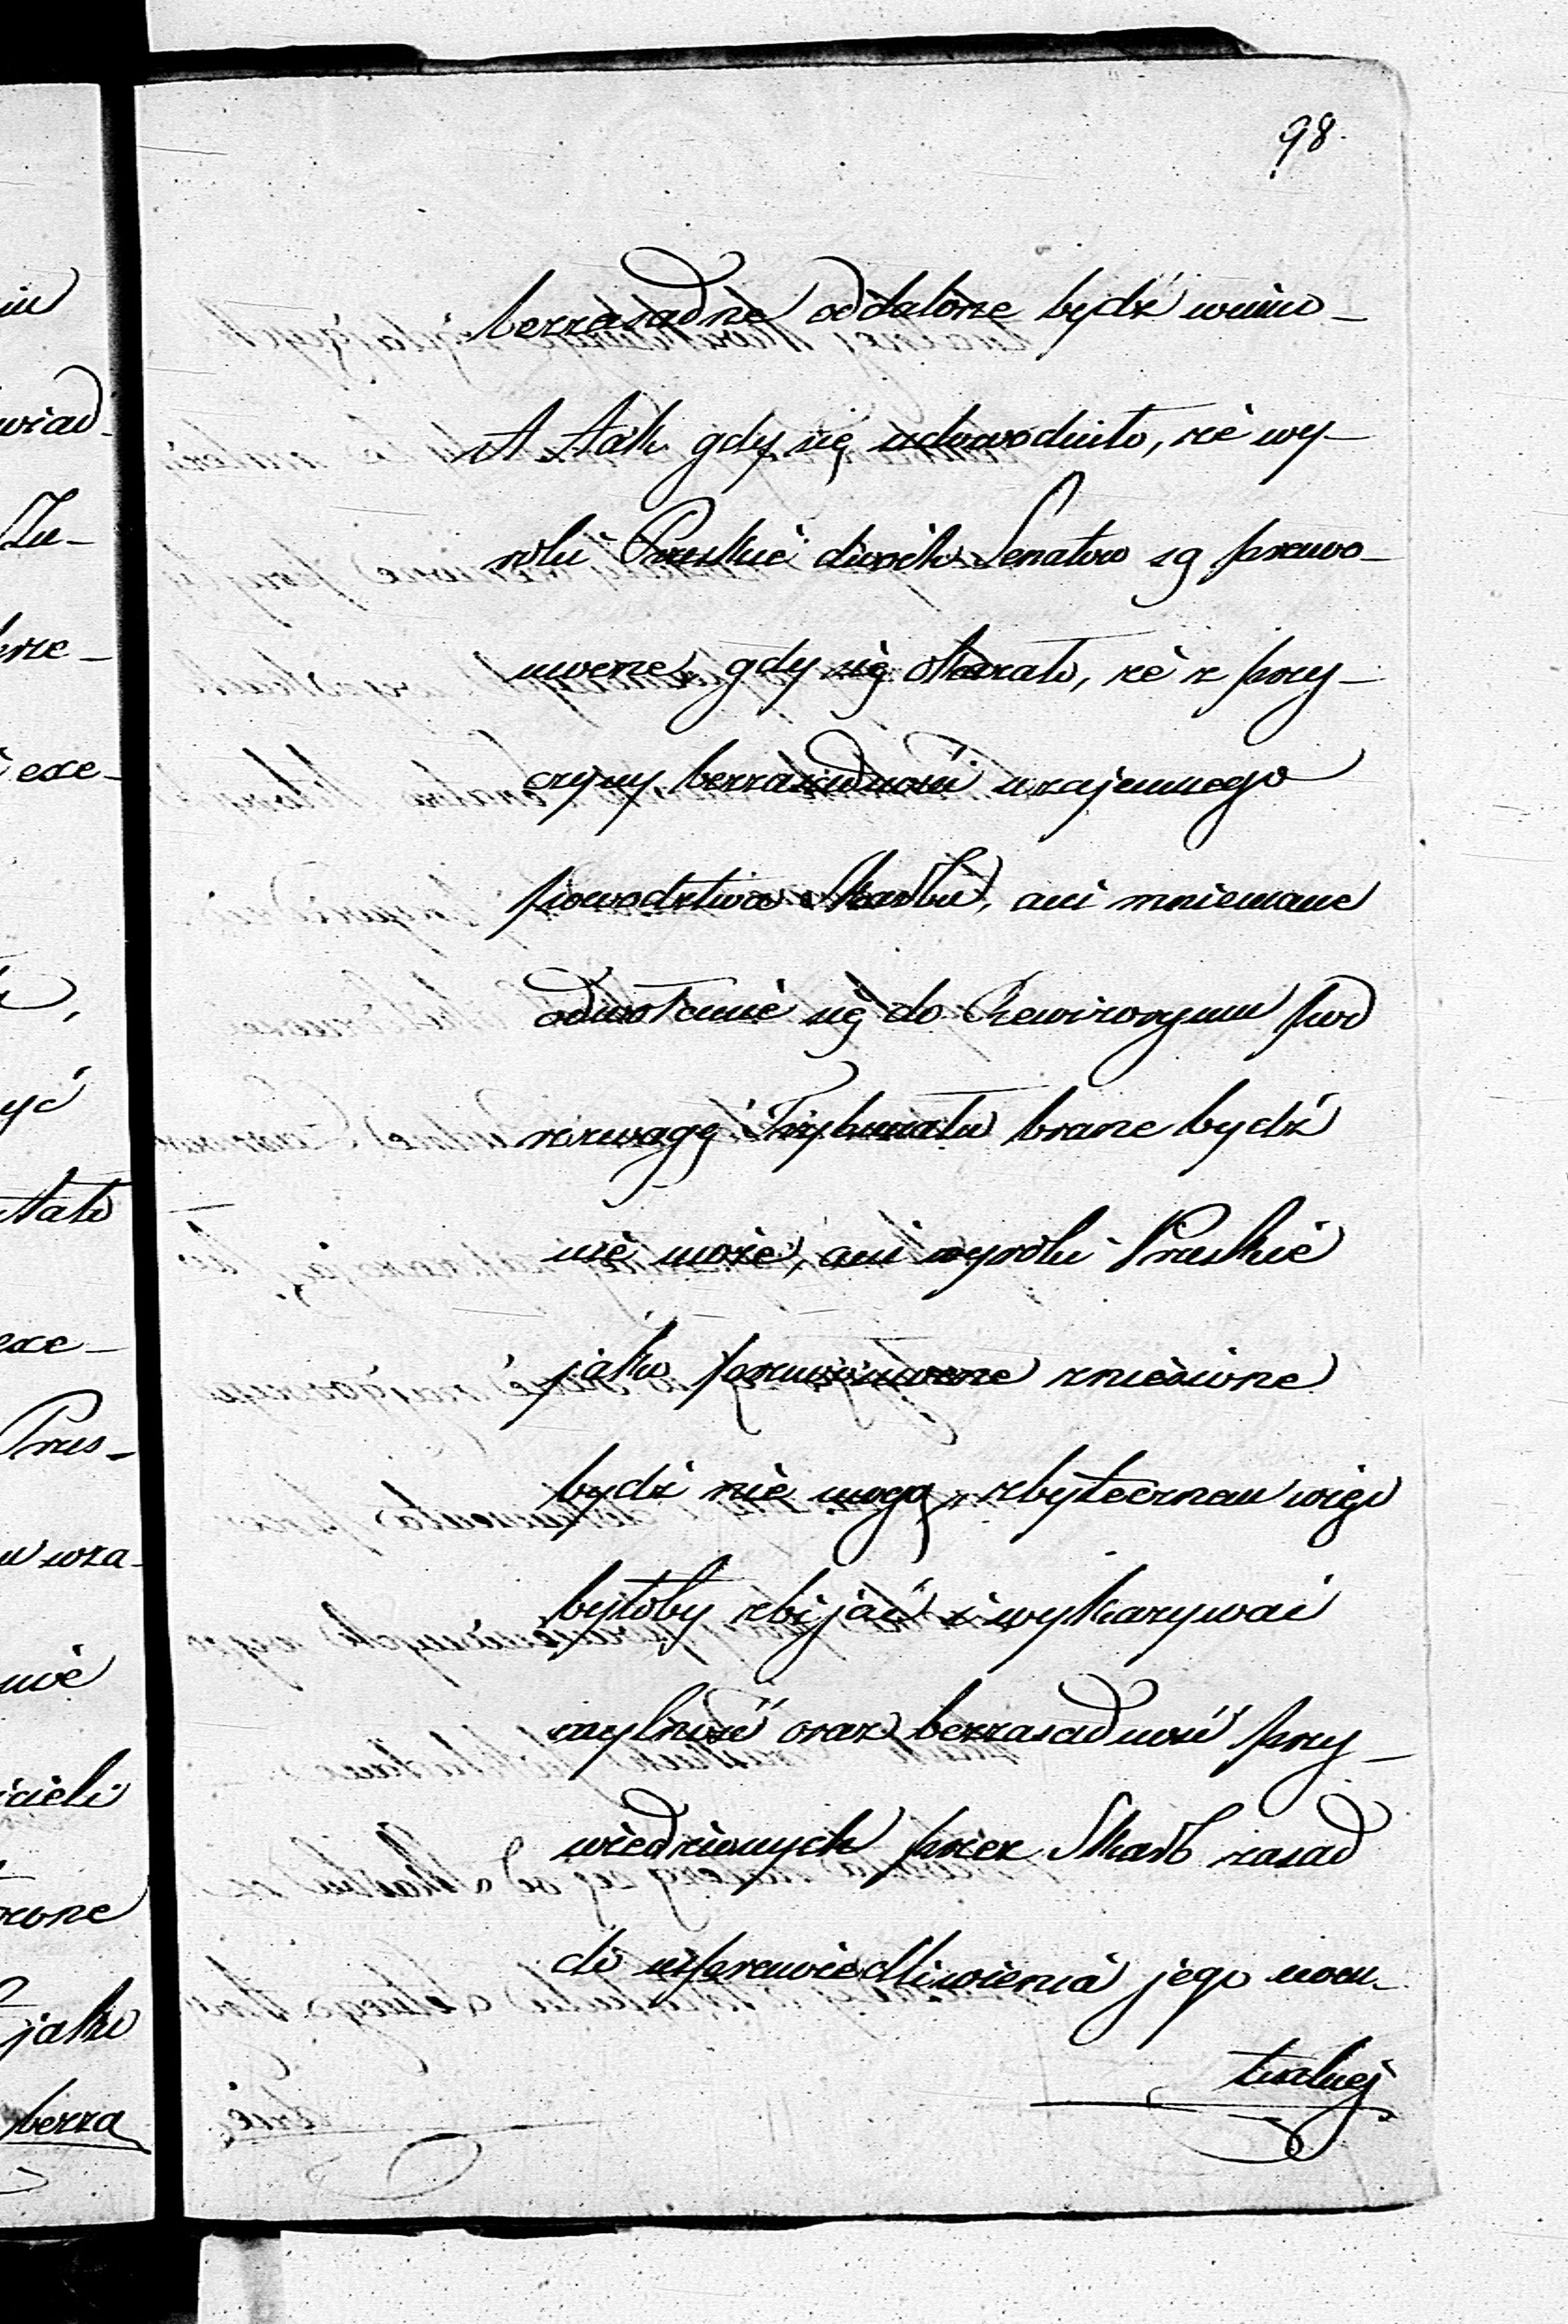 98.
bezzasadne oddalone bydź winno_
A tak gdy się udowodniło, że wy_
roki Pruskie dwóch Senatow są prawo_
mocne, gdy się okazało, że z przy_
czyny bezzasadności wzajemnego
powodztwa Skarbu, ani mniemane
odwołanie się do Rewizoryum pod
rozwagę Trybunału brane bydź
nie może, ani wyroki Pruskie
jako prawomocne zniesione
bydź nie mogą, zbytecznem więc
byłoby zbijać i wykazywać
mylność oraz bezzasadność przy_
wiedzionych przez Skarb zasad
do usprawiedliwienia jego
tualnej
iu
wiad_
Zu_
brze_
exe_
yć
tało
exe_
Prus_
wza_
nie
icieli
jako
bezza